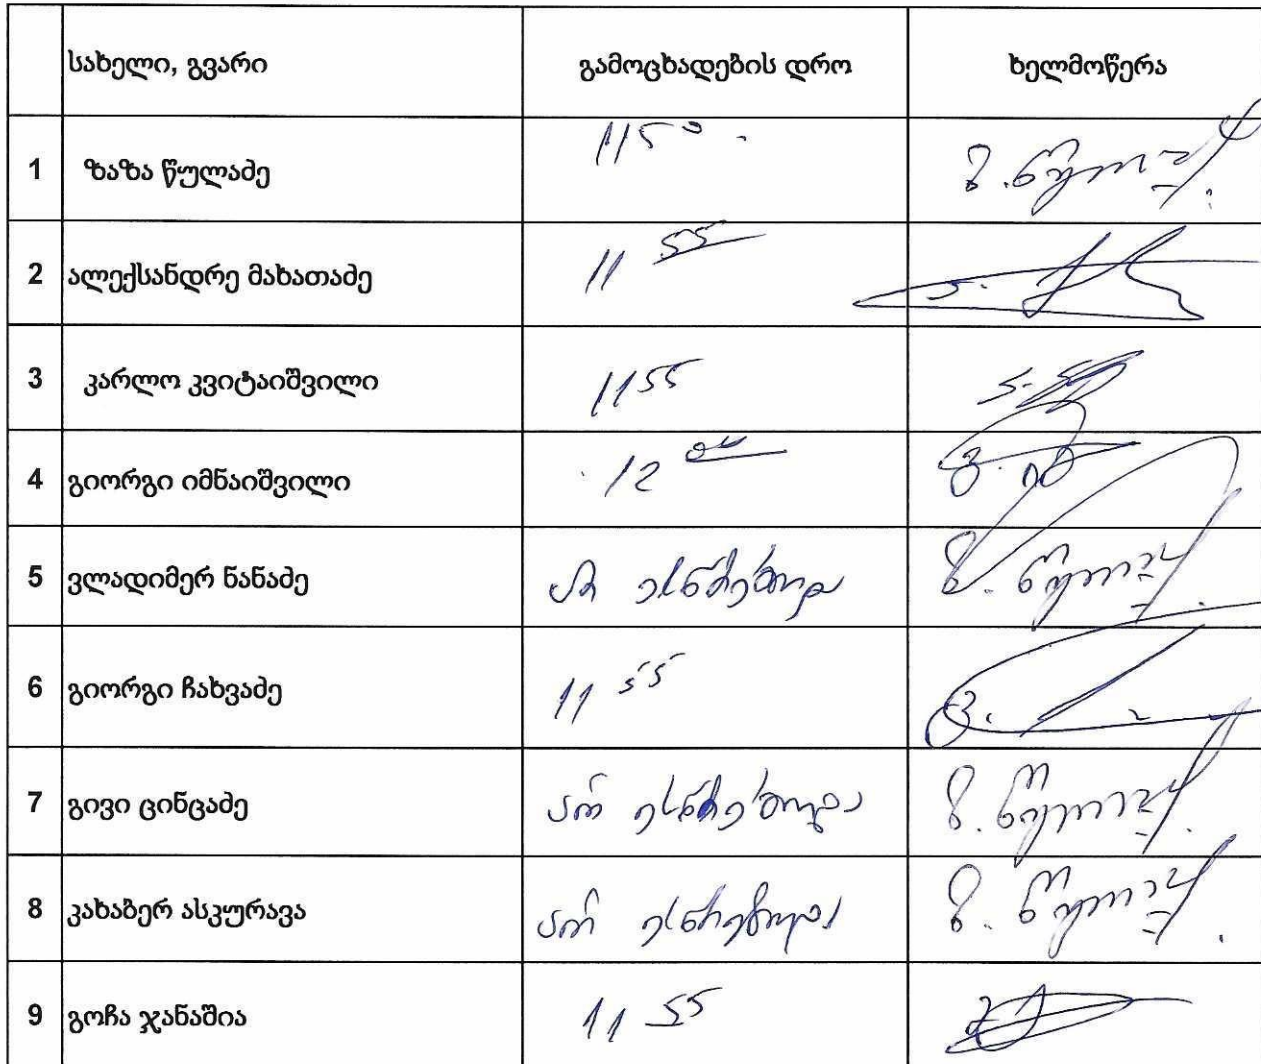 სახელი, გვარი გამოცხადების დრო ხელმოწერა
1 ზაზა წულაძე 11 50 ზ. წულაძე
2 ალექსანდრე მახათაძე 11 55
3 კარლო კვიტაიშვილი 11 55
4 გიორგი იმნაიშვილი 12 00
5 ვლადიმერ ნანაძე არ ესწრებოდა ზ. წულაძე
6 გიორგი ჩახვაძე 11 55
7 გივი ცინცაძე არ ესწრებოდა ზ. წულაძე
8 კახაბერ ასკურავა არ ესწრებოდა ზ. წულაძე
9 გოჩა ჯანაშია 11 55